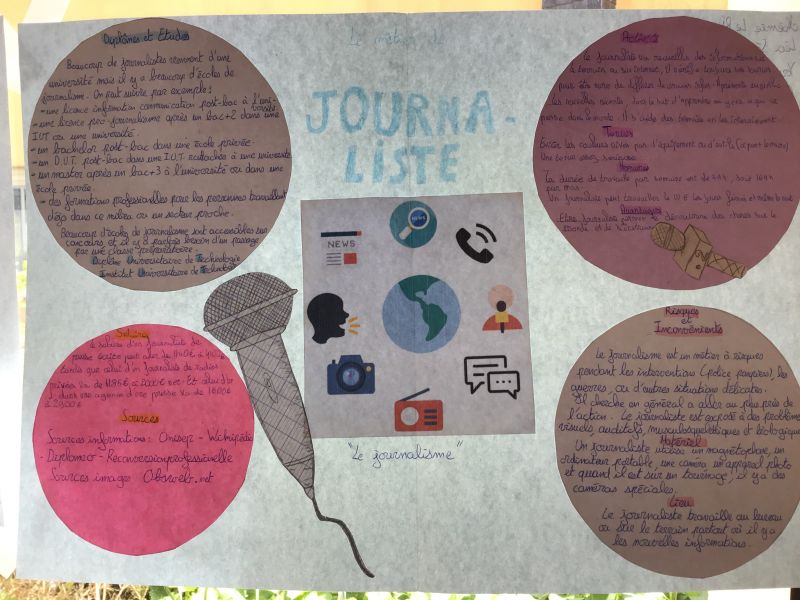 Le métier de
JOURNA-
LISTE
Diplômes et Etudes
Beaucoup de journalistes viennent d'une
université mais il y a beaucoup d'écoles de
journalisme. On peut suivre par exemple :
- une licence information communication post-bac à l'uni-
versité
- une licence pro-journalisme après un bac+2 dans une
IUT ou une université.
- un bachelor post-bac dans une école privée
- un D.U.T. post-bac dans une I.U.T. rattachée à une université
- un master après un bac+3 à l'université ou dans une
école privée
- des formations professionnelles pour les personnes travaillant
déjà dans ce milieu ou un secteur proche.
Beaucoup d'écoles de journalisme sont accessibles sur
concours et il y a parfois besoin d'un passage
par une classe préparatoire.
Diplôme Universitaire de Technologie
Institut Universitaire de Technologie
Salaire
Le salaire d'un journaliste de
presse écrite peut aller de
tandis que celui d'un journaliste de radios
privées va de à net. Et celui d'un
dans une agence de presse va de 1800€
à 2800€
Sources
Sources informations : Onisep - Wikipédia
- Diplomeo - Reconversionprofessionnelle
Sources images Obsweb.net
NEWS
NEWS
"Le journalisme"
Le journaliste recueille des informations
pour être sûr de diffuser de vraies infos.
les nouvelles récentes, dans le but d'apprendre aux gens ce qui se
passe dans le monde.
Tenues
Horaires
La durée de travail par semaine est de
par mois.
Un journaliste peut travailler le WE les jours fériés et même la nuit
Avantages
Etre journaliste permet de découvrir des choses sur le
monde
Risques
et
Inconvénients
Le journalisme est un métier à risques
pendant les interventions (police pompiers), les
guerres, ou d'autres situations délicates.
Il cherche en général à aller au plus près de
l'action. Le journaliste est exposé à des problèmes
visuels, auditifs, musculosquelettiques et biologiques
Matériel
Un journaliste utilise un magnétophone, un
ordinateur portable, une caméra un appareil photo
et quand il est sur un tournage, il y a des
caméras spéciales.
Lieu
Le journaliste travaille au bureau
ou sur le terrain partout où il y a
les nouvelles informations.